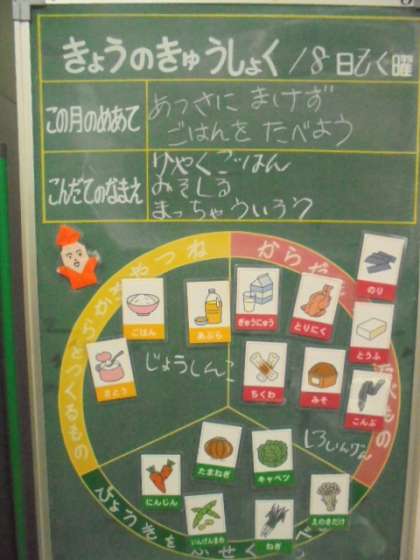 きょうのきゅうしょく 18日もく曜
この月のめあて
あつさに まけず
ごはんを たべよう
こんだてのなまえ
ひゃくごはん
みそしる
まっちゃういろう
ごはん
あぶら
さとう
じょうしんこ
ぎゅうにゅう
とりにく
のり
とうふ
ちくわ
みそ
こんぶ
しろいんげん
たまねぎ
キャベツ
にんじん
いんげんまめ
ねぎ
えのきだけ